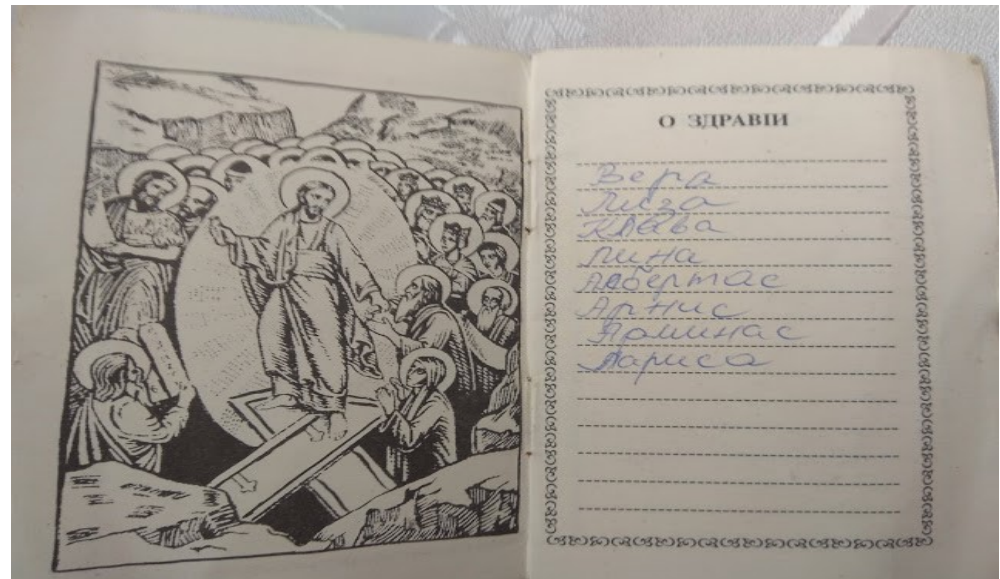 О ЗДРАВІИ
Вера
Лиза
Клава
Лина
Албертас
Арнис
Ламинас
Лариса